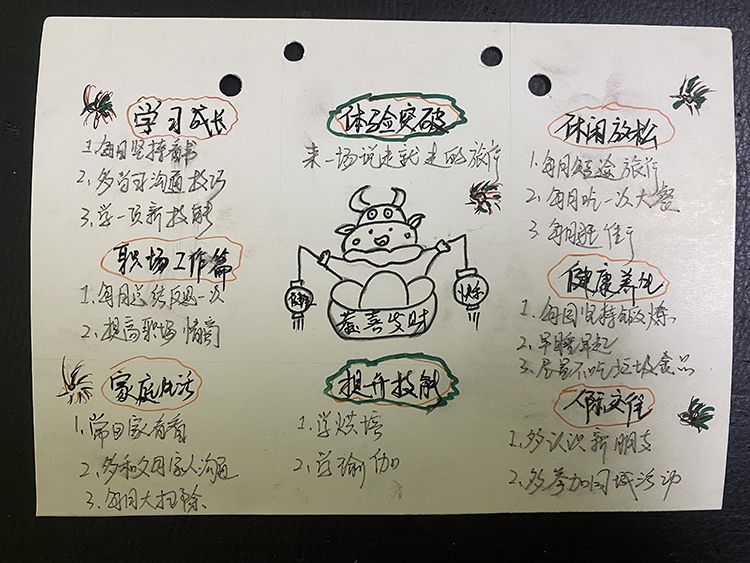 学习成长
1.每日坚持看书
2.多学习沟通技巧
3.学一项新技能
职场工作篇
1.每月总结反思一次
2.提高职场情商
家庭生活
1.常回家看看
2.多和父母家人沟通
3.每周大扫除
体验突破
来一场说走就走的旅行
快乐
恭喜发财
提升技能
1.学烘培
2.学瑜伽
休闲放松
1.每月短途旅行
2.每月吃一次大餐
3.每月逛街
健康养生
1.每周坚持锻炼
2.早睡早起
3.尽量不吃垃圾食品
人际交往
1.多认识新朋友
2.多参加同城活动